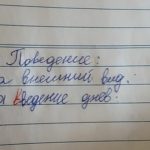 Поведение:
а внешний вид.
я ведение днев.